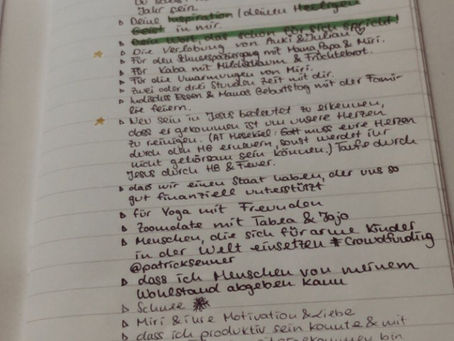 Jahr sein.
▷ Deine Inspiration / deinen Heiligen
Geist in mir.
▷ Dein Wort, das schon für sich spricht!
▷ Die Verlobung von Auki & Julian ♡
▷ Für den Schneespaziergang mit Mama, Papa & Miri.
▷ Für Kaba mit Milchschaum & Früchtebrot.
▷ Für die Umarmungen von Miri.
▷ Zwei oder drei Stunden Zeit mit dir.
▷ Indisches Essen & Mamas Geburtstag mit der Fami-
lie feiern.
▷ Neu sein in Jesus bedeutet zu erkennen,
dass er gekommen ist um unsere Herzen
zu reinigen. (AT Hesekiel: Gott muss eure Herzen
durch den HG erneuern, sonst werdet ihr
nicht gehorsam sein können.) Taufe durch
Jesus durch HG & Feuer.
▷ dass wir einen Staat haben, der uns so
gut finanziell unterstützt
▷ für Yoga mit Freunden
▷ Zoomdate mit Tabea & Jojo
▷ Menschen, die sich für arme Kinder
in der Welt einsetzen #Crowdfunding
@patricksenner
▷ dass ich Menschen von meinem
Wohlstand abgeben kann
▷ Schnee
▷ Miri & ihre Motivation & Liebe
▷ dass ich produktiv sein konnte & mit
bin